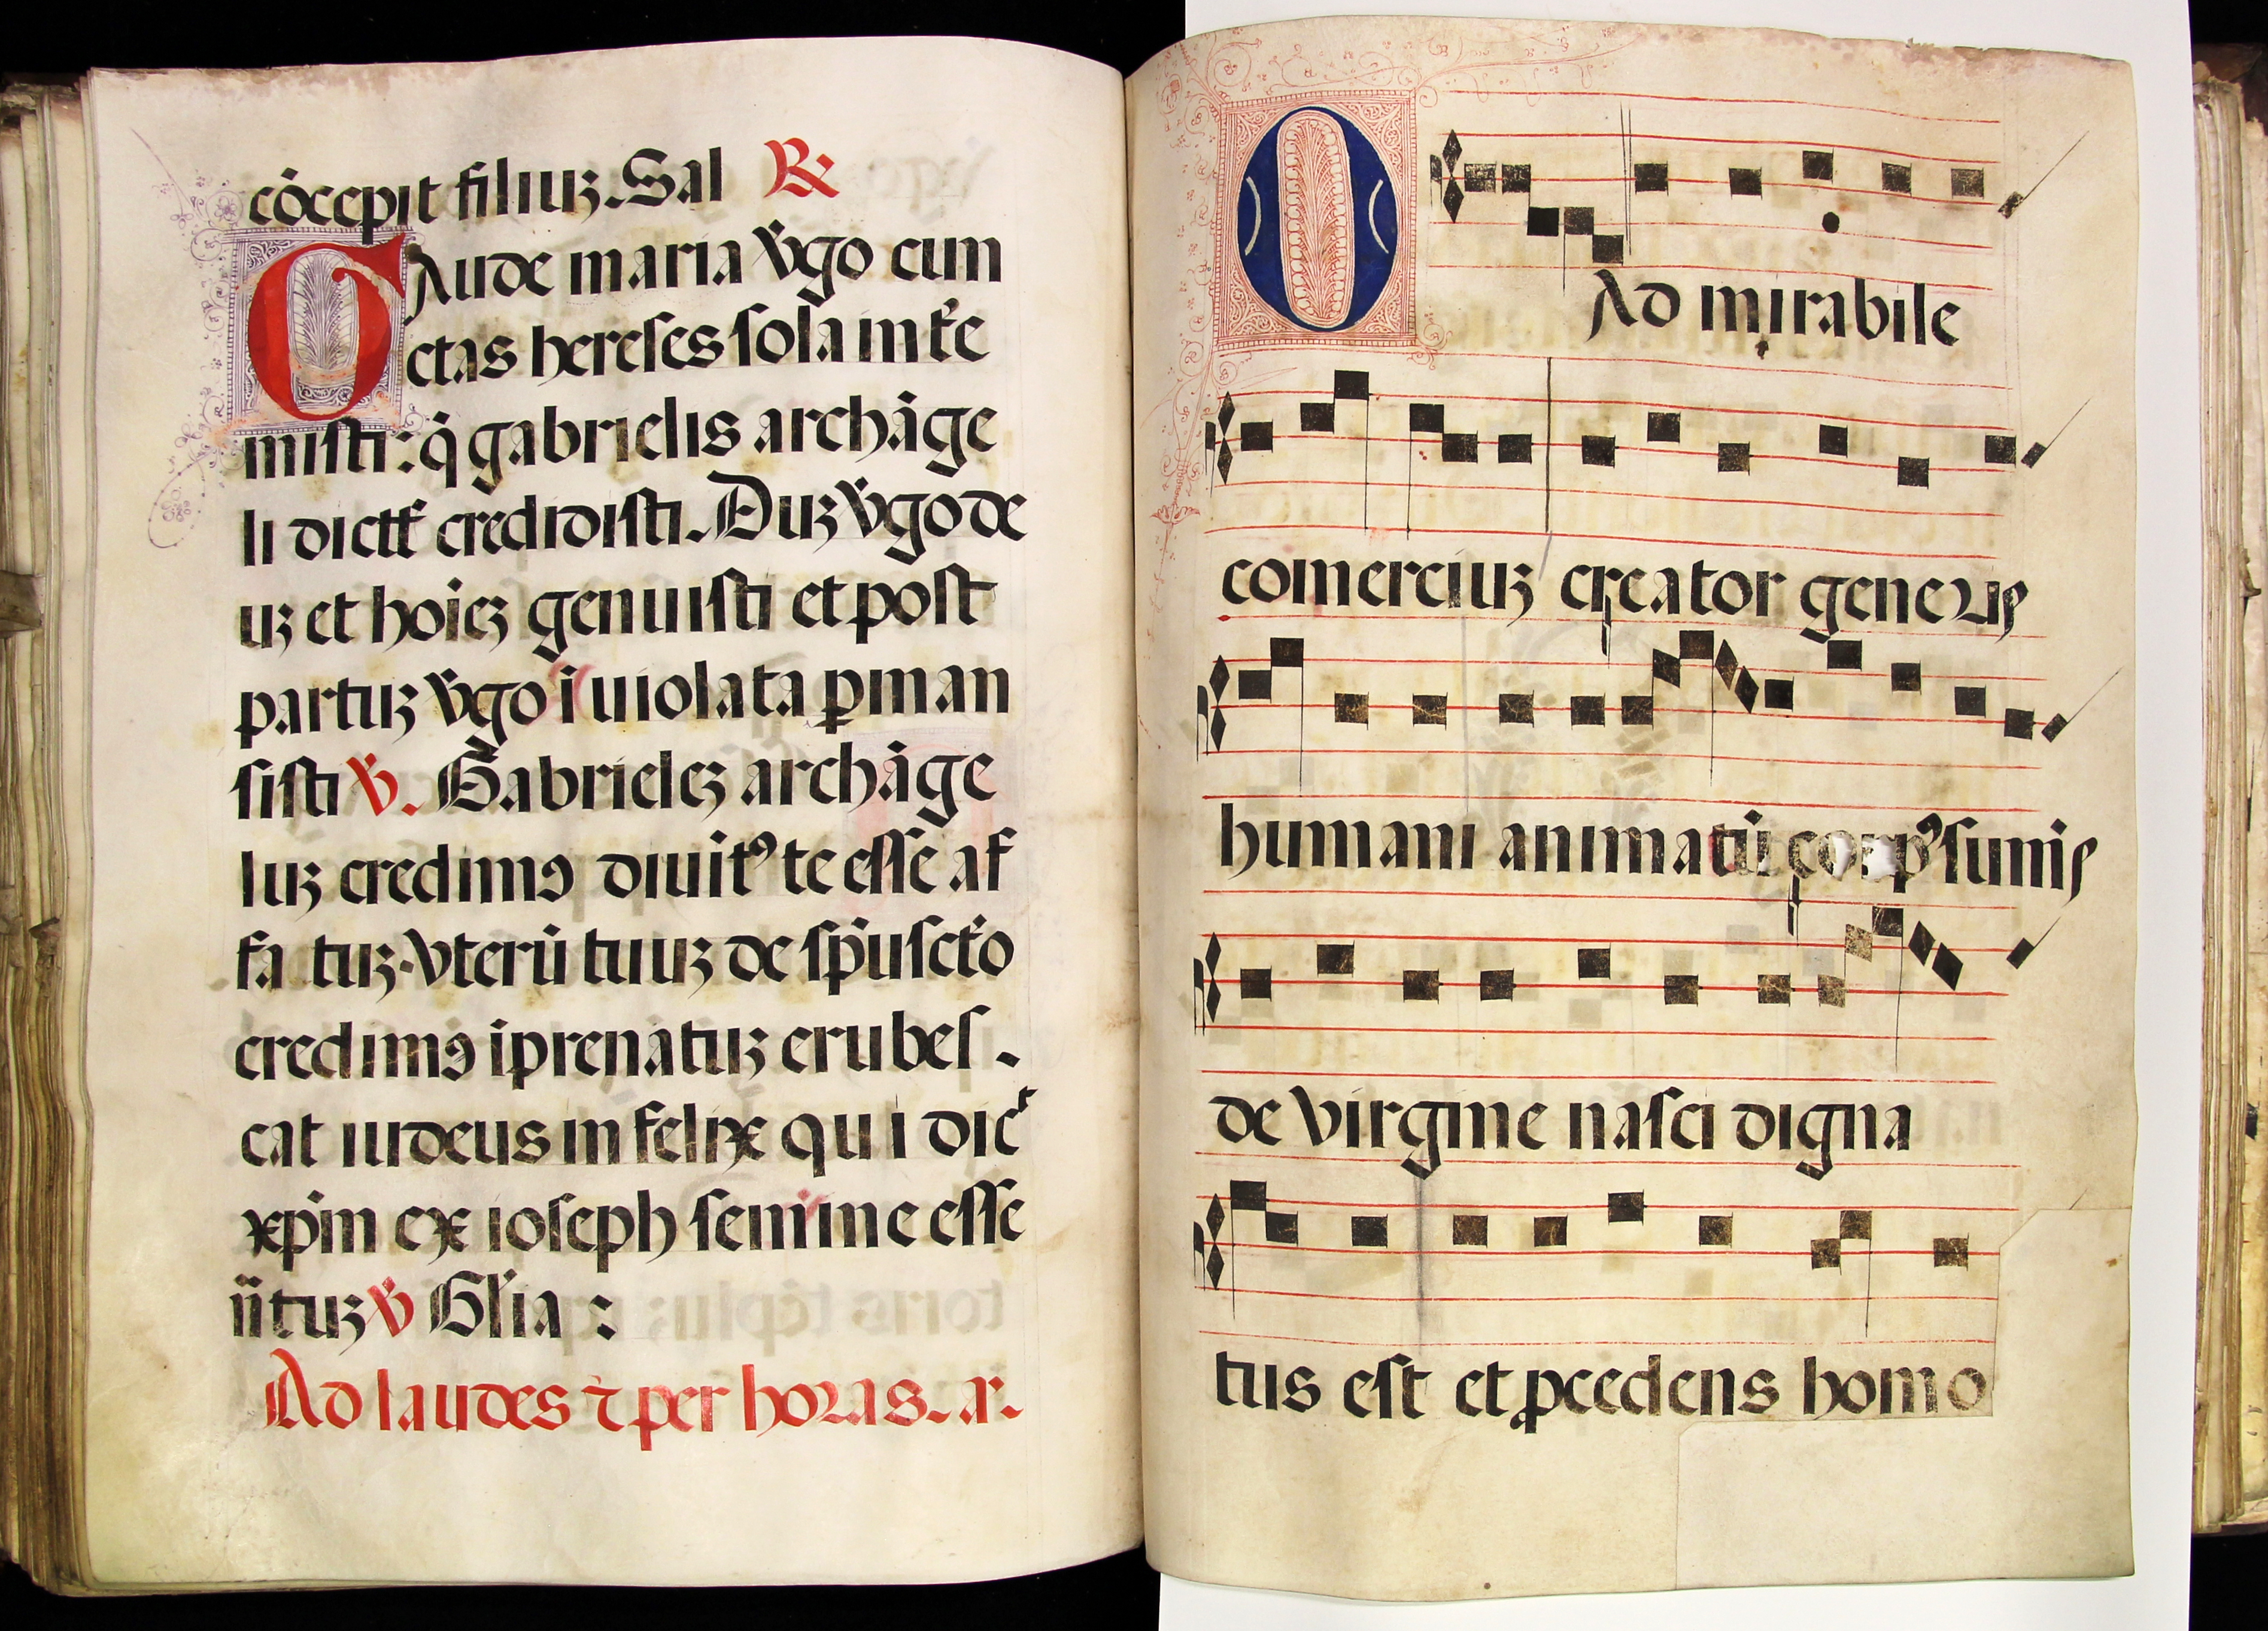 cōcepit filiuʒ. Sal ℟
GAude maria v̇go cun
ctas hereses sola inte̾
misti: q̇ gabrielis archāge
li dictt̾ credidisti. Duʒ v̇go de
uʒ et hoīeʒ genuisti et post
partuʒ v̇go īuiolata ꝑman
sisti ℣. Gabrieleʒ archāge
luʒ credimꝰ diuitꝰ te esse af
fa tuʒ. vterū tuuʒ de sp̄u sct̄o
credimꝰ īprenatuʒ erubes-
cat iudeus infelix qui dic̾
xp̄m ex ioseph semine esse
n̄tuʒ ℣ Gl̄ia :
Ad laudes ⁊ per horas. a̾.
O Ad mirabile
comerciuʒ creator generis
humani animatū corpꝰ sumēs
de virgine nasci digna
tus est et ꝓcedens homo